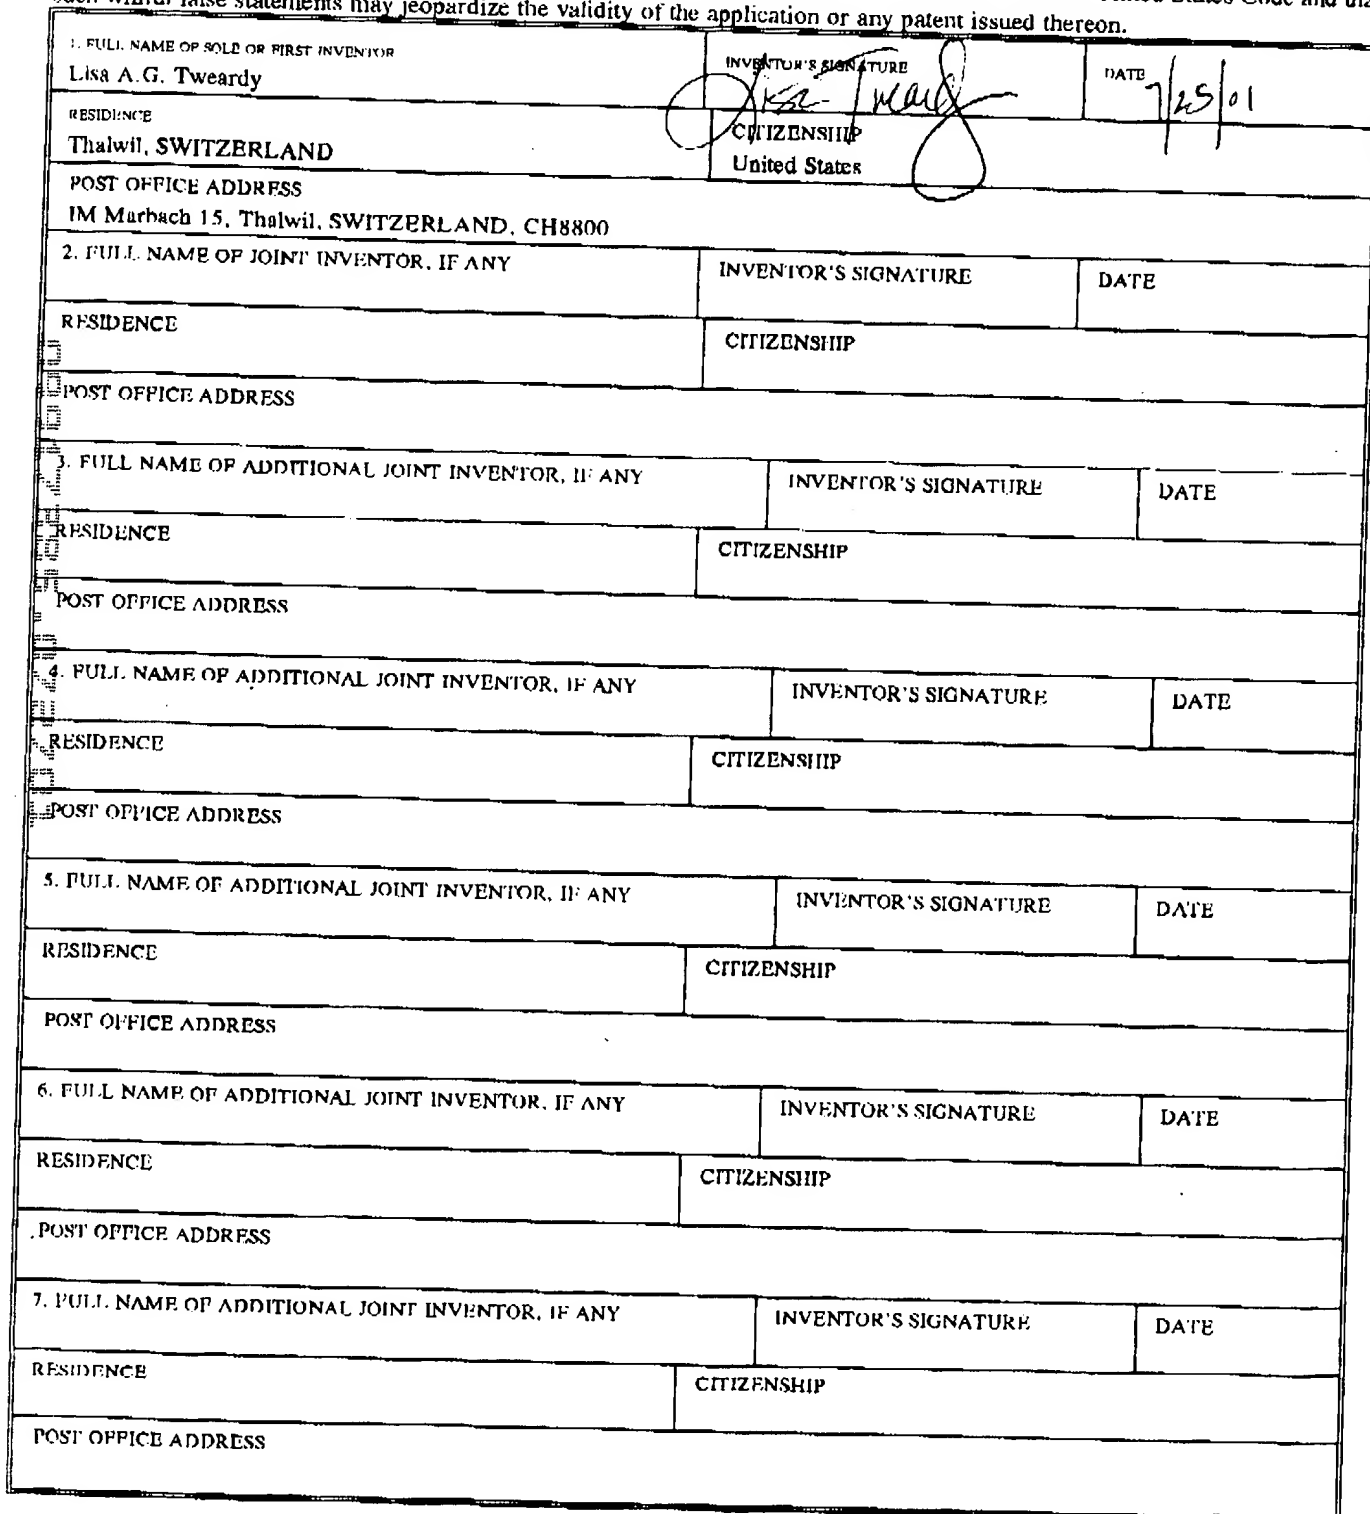 such willful false statements may jeopardize the validity of the application or any patent issued thereon.
States Code and that
1. FULL NAME OF SOLE OR FIRST INVENTOR
Lisa A.G. Tweardy
INVENTOR'S SIGNATURE
Lisa Tweardy
DATE
7/25/01
RESIDENCE
Thalwil, SWITZERLAND
CITIZENSHIP
United States
POST OFFICE ADDRESS
IM Marbach 15, Thalwil, SWITZERLAND, CH8800
2. FULL NAME OF JOINT INVENTOR, IF ANY
INVENTOR'S SIGNATURE
DATE
RESIDENCE
CITIZENSHIP
POST OFFICE ADDRESS
3. FULL NAME OF ADDITIONAL JOINT INVENTOR, IF ANY
INVENTOR'S SIGNATURE
DATE
RESIDENCE
CITIZENSHIP
POST OFFICE ADDRESS
4. FULL NAME OF ADDITIONAL JOINT INVENTOR, IF ANY
INVENTOR'S SIGNATURE
DATE
RESIDENCE
CITIZENSHIP
POST OFFICE ADDRESS
5. FULL NAME OF ADDITIONAL JOINT INVENTOR, IF ANY
INVENTOR'S SIGNATURE
DATE
RESIDENCE
CITIZENSHIP
POST OFFICE ADDRESS
6. FULL NAME OF ADDITIONAL JOINT INVENTOR, IF ANY
INVENTOR'S SIGNATURE
DATE
RESIDENCE
CITIZENSHIP
POST OFFICE ADDRESS
7. FULL NAME OF ADDITIONAL JOINT INVENTOR, IF ANY
INVENTOR'S SIGNATURE
DATE
RESIDENCE
CITIZENSHIP
POST OFFICE ADDRESS